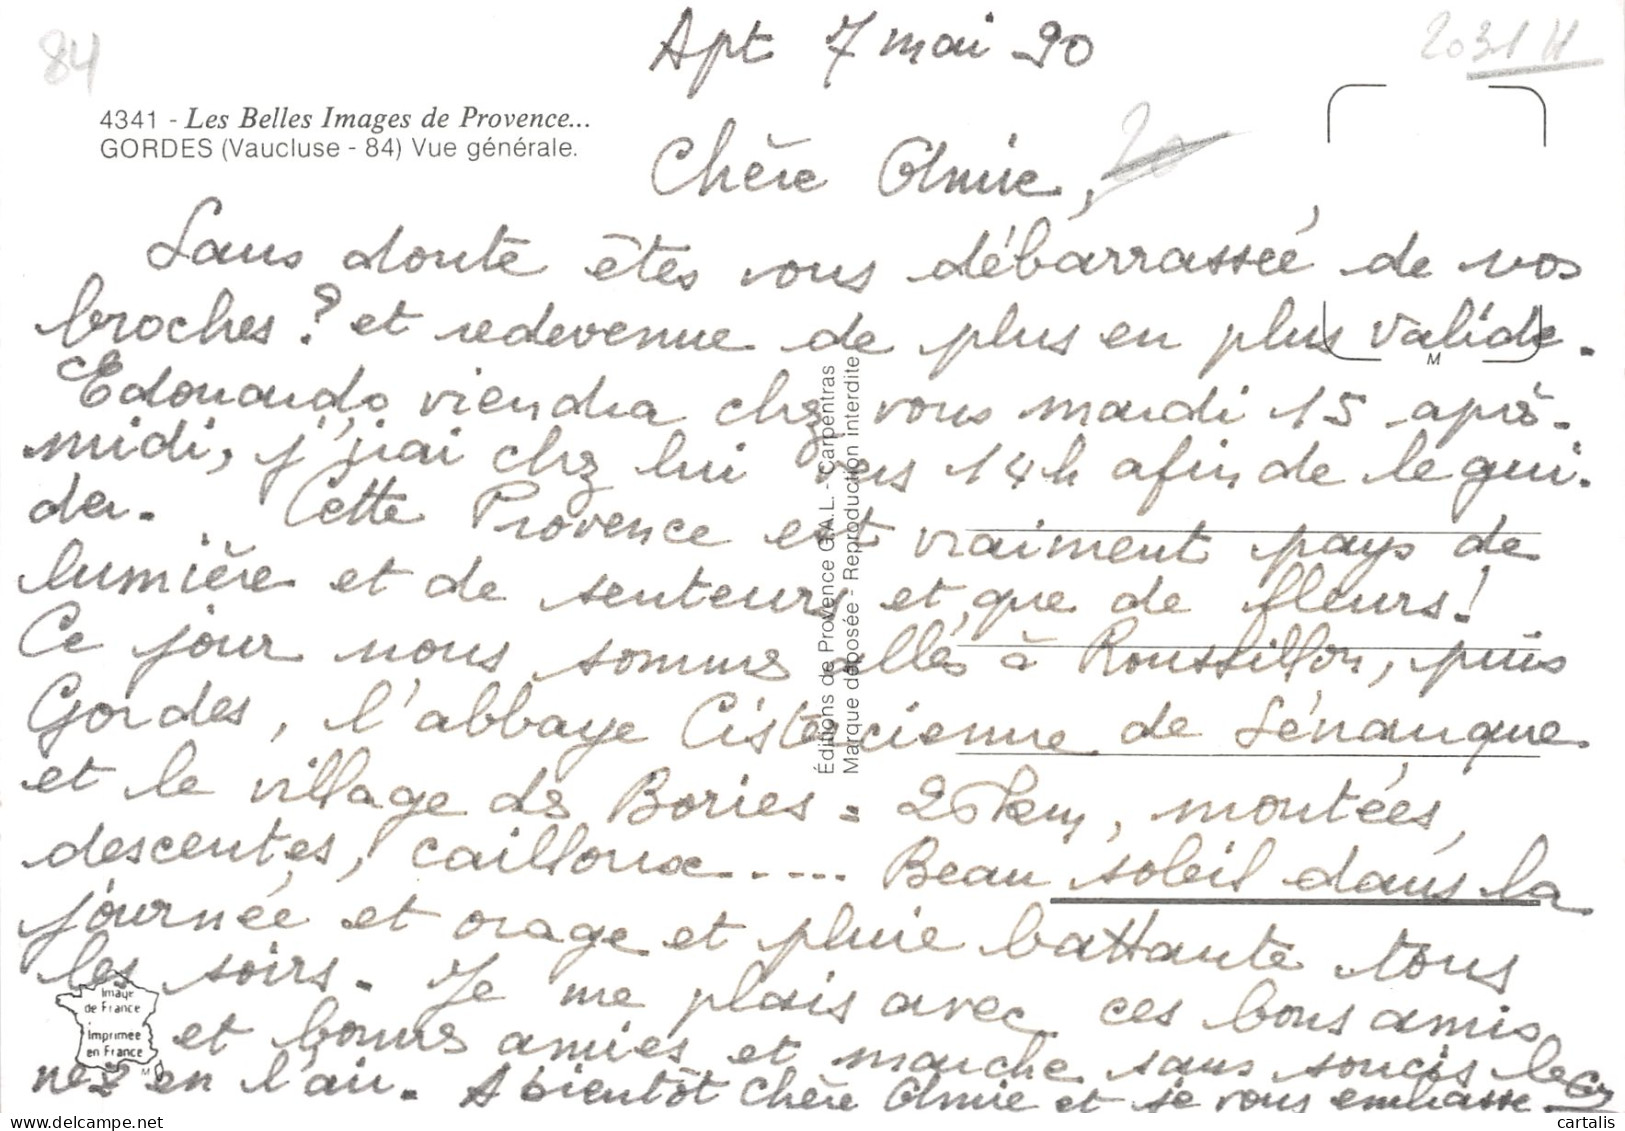 84
Apt 7 mai 90
2031 H
4341 - Les Belles Images de Provence...
GORDES (Vaucluse - 84) Vue générale.
Chère Amie,
20
Sans doute êtes vous débarrassée de vos
broches ? et redevenue de plus en plus valide.
Edouardo viendra chez vous mardi 15 après-
midi, j'irai chez lui vers 14h afin de le gui-
der. Cette Provence est vraiment pays de
lumière et de senteurs et que de fleurs !
Ce jour nous sommes allés à Roussillon, puis
Gordes, l'abbaye Cistercienne de Sénanque
et le village des Bories = 25km, montées,
descentes, cailloux..... Beau soleil dans la
journée et orage et pluie battante tous
les soirs. Je me plais avec ces bons amis
et bonnes amies et marche sans soucis le
nez en l'air. A bientôt Chère Amie et je vous embrasse
Éditions de Provence G.A.L. - Carpentras
Marque déposée - Reproduction interdite
M
Image
de France
Imprimée
en France
M
delcampe.net
cartalis